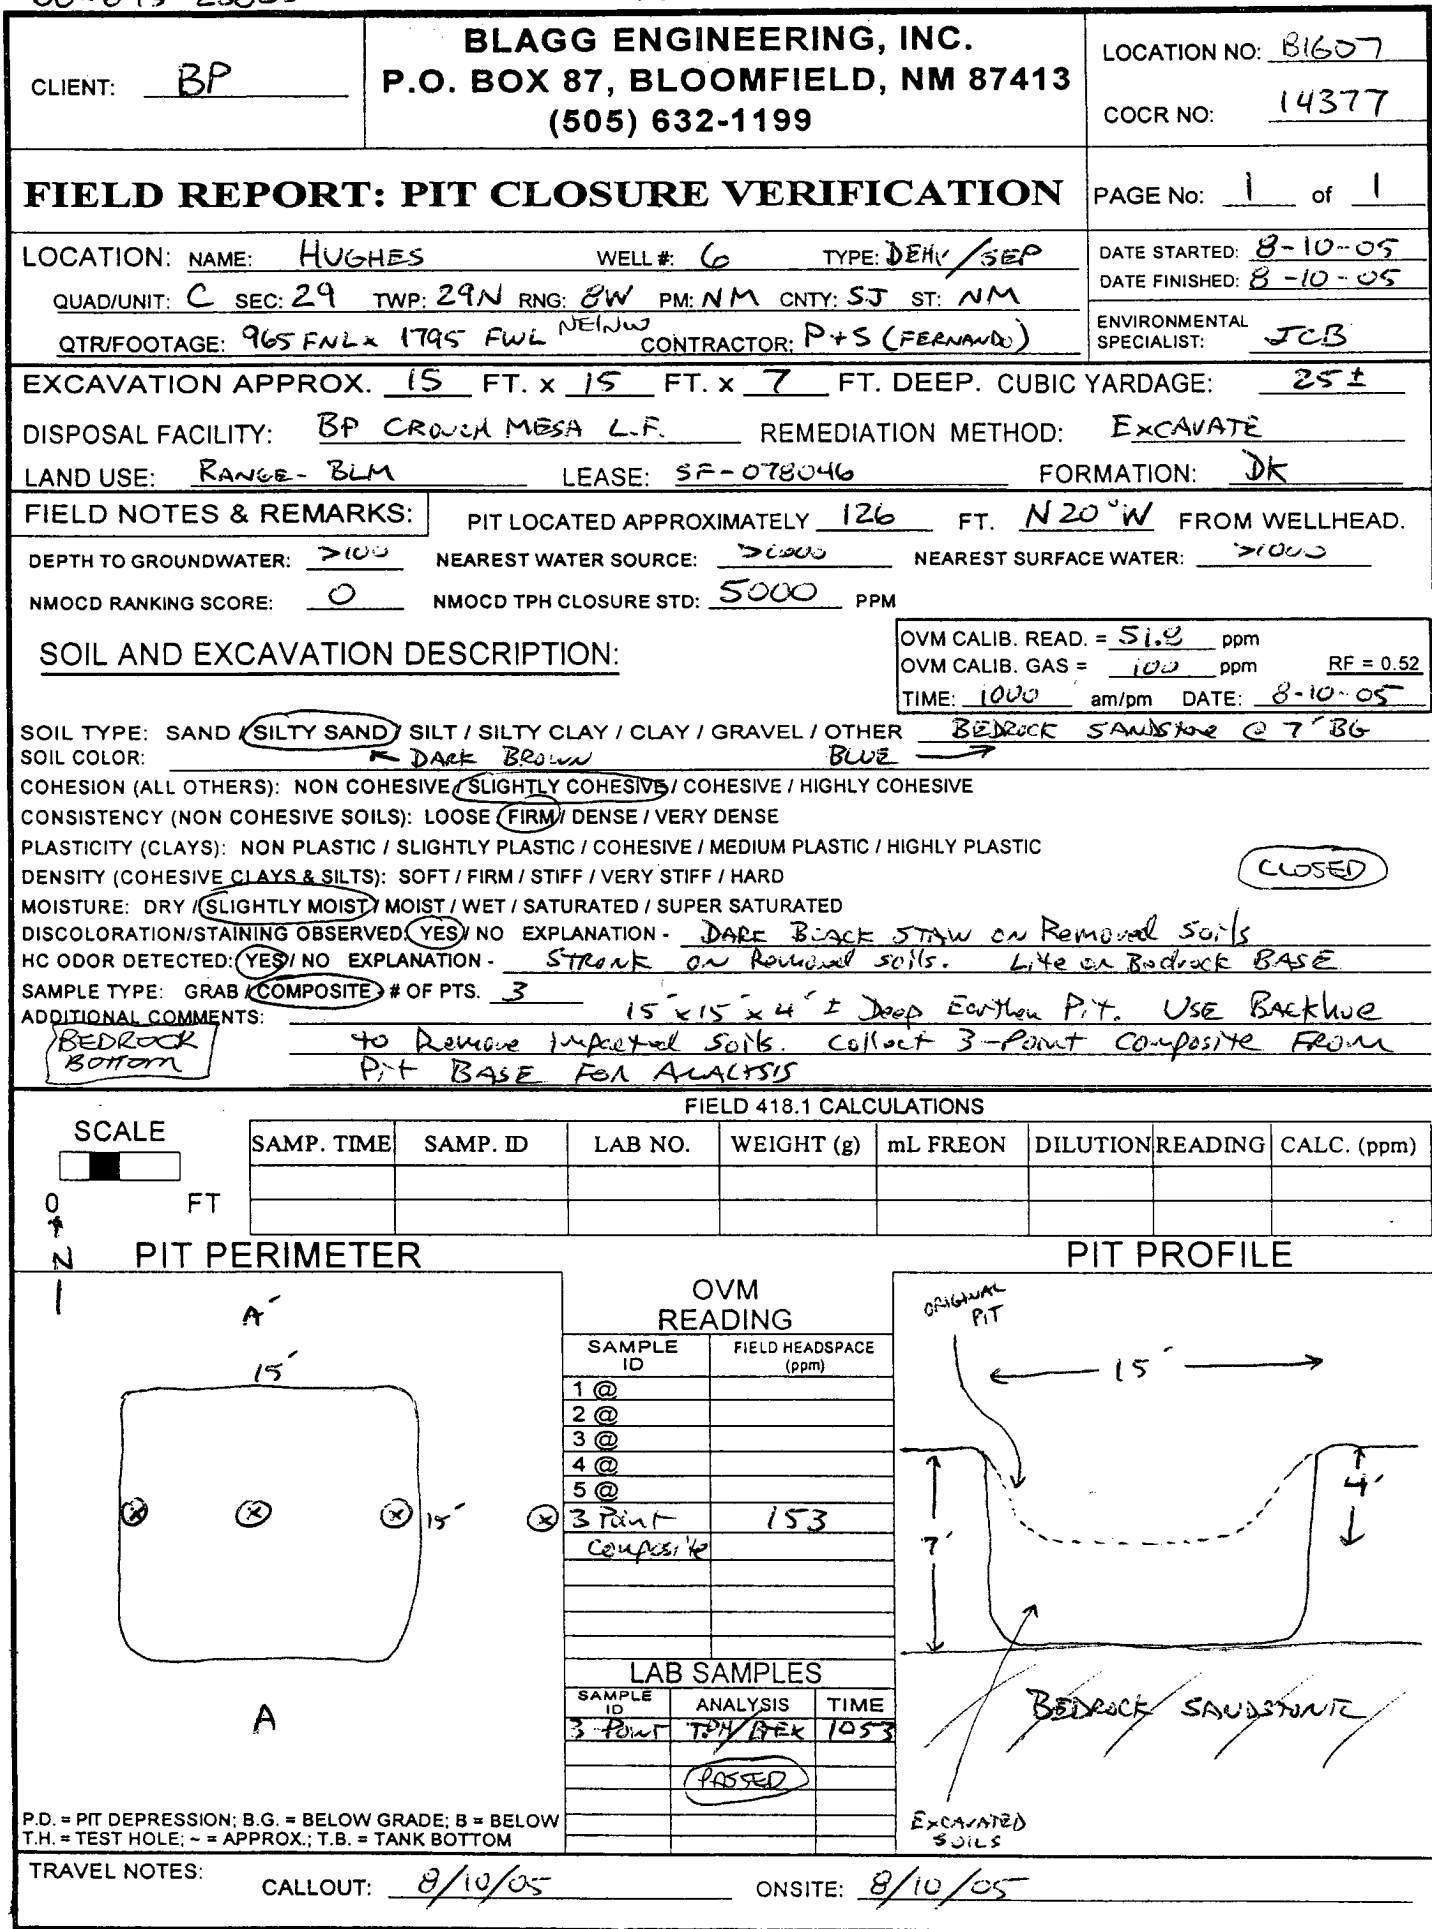 BLAGG ENGINEERING, INC.
P.O. BOX 87, BLOOMFIELD, NM 87413
(505) 632-1199
CLIENT: BP
LOCATION NO: B1607
COCR NO: 14377
FIELD REPORT: PIT CLOSURE VERIFICATION
PAGE No: 1 of 1
LOCATION: NAME: HUGHES WELL #: 6 TYPE: DEHY/SEP
DATE STARTED: 8-10-05
DATE FINISHED: 8-10-05
QUAD/UNIT: C SEC: 29 TWP: 29N RNG: 8W PM: NM CNTY: SJ ST: NM
QTR/FOOTAGE: 965 FNL x 1795 FWL NE/NW CONTRACTOR: P+S (FERNANDO)
ENVIRONMENTAL SPECIALIST: JCB
EXCAVATION APPROX. 15 FT. x 15 FT. x 7 FT. DEEP. CUBIC YARDAGE: 25±
DISPOSAL FACILITY: BP CROUCH MESA L.F. REMEDIATION METHOD: EXCAVATE
LAND USE: RANGE - BLM LEASE: SF-078046 FORMATION: DK
FIELD NOTES & REMARKS: PIT LOCATED APPROXIMATELY 126 FT. N20°W FROM WELLHEAD.
DEPTH TO GROUNDWATER: >100 NEAREST WATER SOURCE: >1000 NEAREST SURFACE WATER: >1000
NMOCD RANKING SCORE: 0 NMOCD TPH CLOSURE STD: 5000 PPM
SOIL AND EXCAVATION DESCRIPTION:
OVM CALIB. READ. = 51.8 ppm
OVM CALIB. GAS = 100 ppm RF = 0.52
TIME: 1000 am/pm DATE: 8-10-05
SOIL TYPE: SAND / SILTY SAND / SILT / SILTY CLAY / CLAY / GRAVEL / OTHER BEDROCK SANDSTONE @ 7' BG
SOIL COLOR: ← DARK BROWN BLUE →
COHESION (ALL OTHERS): NON COHESIVE / SLIGHTLY COHESIVE / COHESIVE / HIGHLY COHESIVE
CONSISTENCY (NON COHESIVE SOILS): LOOSE / FIRM / DENSE / VERY DENSE
PLASTICITY (CLAYS): NON PLASTIC / SLIGHTLY PLASTIC / COHESIVE / MEDIUM PLASTIC / HIGHLY PLASTIC
DENSITY (COHESIVE CLAYS & SILTS): SOFT / FIRM / STIFF / VERY STIFF / HARD
CLOSED
MOISTURE: DRY / SLIGHTLY MOIST / MOIST / WET / SATURATED / SUPER SATURATED
DISCOLORATION/STAINING OBSERVED: YES / NO EXPLANATION - DARK BLACK STAIN ON Removed Soils
HC ODOR DETECTED: YES / NO EXPLANATION - STRONG ON Removed soils. Lite on Bedrock BASE
SAMPLE TYPE: GRAB / COMPOSITE # OF PTS. 3
ADDITIONAL COMMENTS: 15' x 15' x 4' ± Deep Earthen Pit. USE Backhoe
BEDROCK Bottom
to Remove Impacted Soils. Collect 3-Point Composite FROM
Pit BASE FOR ANALYSIS
FIELD 418.1 CALCULATIONS
SCALE
0 FT
SAMP. TIME SAMP. ID LAB NO. WEIGHT (g) mL FREON DILUTION READING CALC. (ppm)
N
PIT PERIMETER
A'
15'
15'
A
OVM READING
SAMPLE ID FIELD HEADSPACE (ppm)
1 @
2 @
3 @
4 @
5 @
3 Point 153
Composite
LAB SAMPLES
SAMPLE ID ANALYSIS TIME
3-Point TPH/BTEX 1053
PASSED
PIT PROFILE
ORIGINAL PIT
15'
7'
4'
BEDROCK SANDSTONE
EXCAVATED SOILS
P.D. = PIT DEPRESSION; B.G. = BELOW GRADE; B = BELOW
T.H. = TEST HOLE; ~ = APPROX.; T.B. = TANK BOTTOM
TRAVEL NOTES: CALLOUT: 8/10/05 ONSITE: 8/10/05